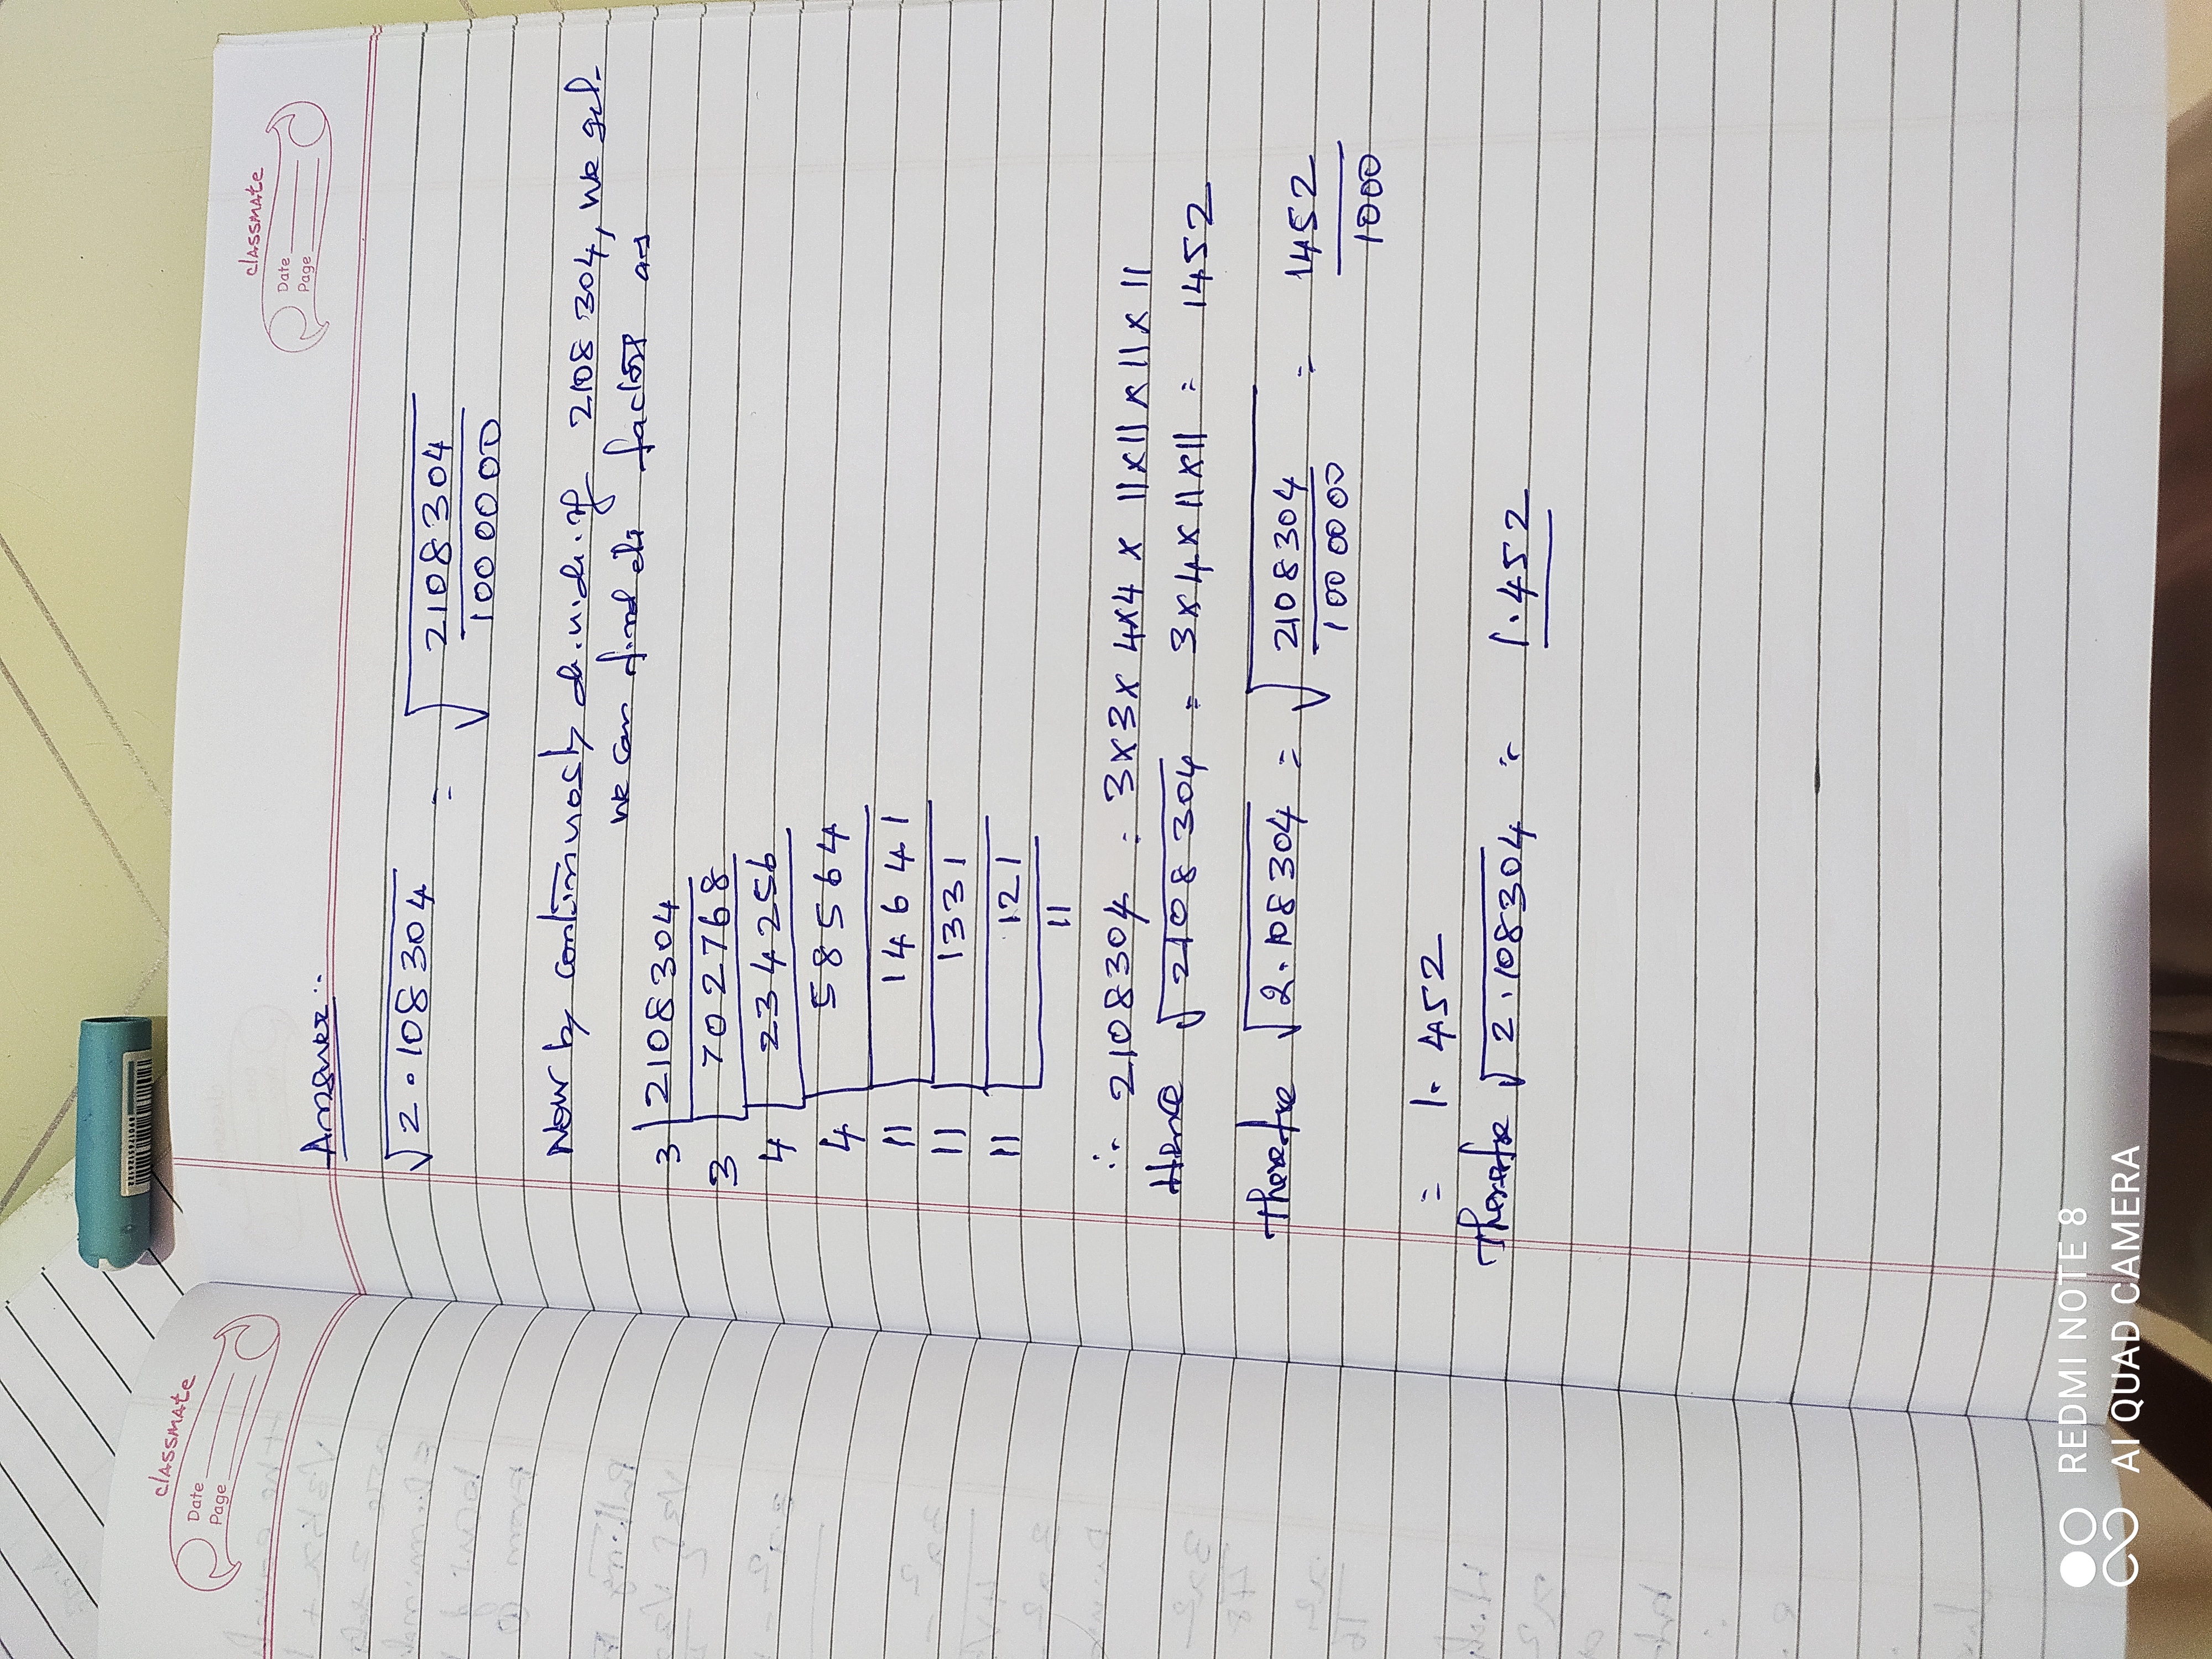 classmate
Date
Page
Answer :.
√2.108304 = √2108304
1000000
Now by continuosly di.vidi.if 2108304, we get.
we can find its factors as
3 2108304
3 702768
4 234256
4 58564
11 14641
11 1331
11 121
11
∴ 2108304 = 3x3x 4x4 x 11x11x11x11
Hence √2108304 = 3x4x11x11 = 1452
Therefore √2.108304 = √2108304 = 1452
1000000 1000
= 1.452
Therefore √2.108304 = 1.452
classmate
Date
Page
REDMI NOTE 8
AI QUAD CAMERA